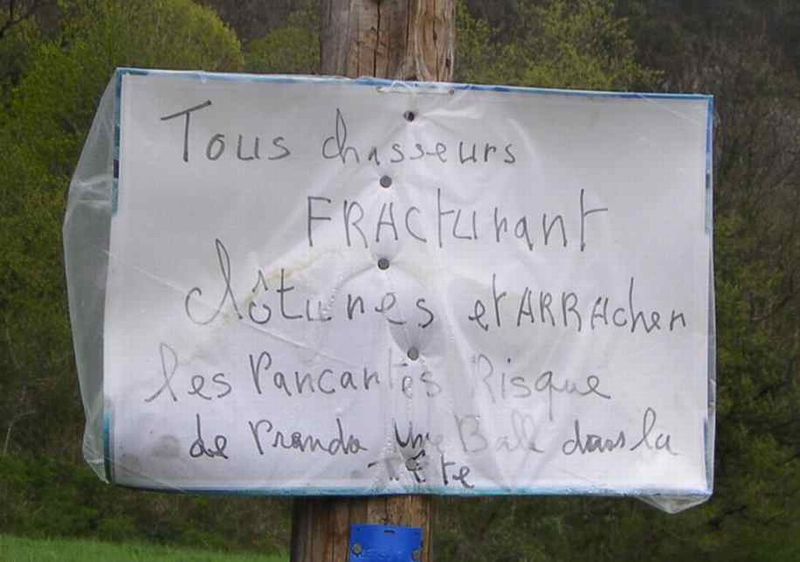 Tous chasseurs
FRACturant
clôtures et ARRACher
les Pancartes Risque
de Prendre Une Balle dans la
Tête